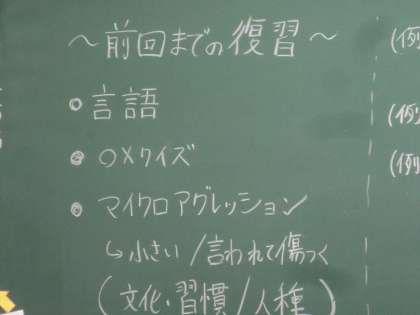 〜前回までの復習〜
◎言語
◎○×クイズ
◎マイクロアグレッション
↳小さい/言われて傷つく
(文化・習慣/人種)
(例
(例
(例